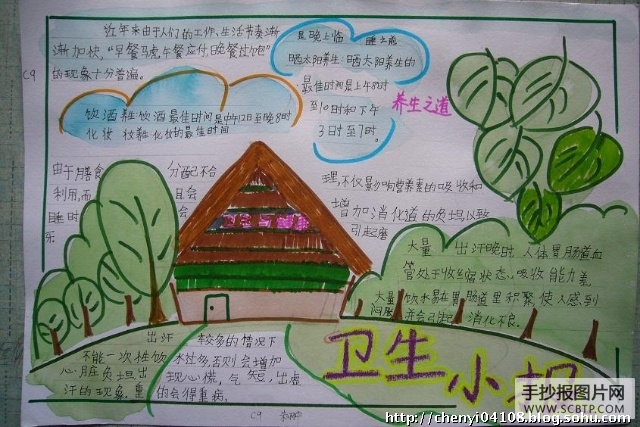 近年来由于人们的工作、生活节奏渐
渐加快,“早餐马虎,午餐应付,晚餐过饱”
的现象十分普遍。
C9
饮酒 饮酒最佳时间是中午12至晚8时
化妆 化妆的最佳时间
晒太阳养生 晒太阳养生的
最佳时间是上午8时
到10时和下午
3时至7时。
养生之道
由于膳食 分配不合
利用,而 且会
睡时 会
理,不仅影响营养素的吸收和
增加消化道的负担以致
引起
大量 出汗晚时,人体胃肠道血
管处于收缩状态、吸收能力差
大量饮水易在胃肠道里积聚,使人感到
消化不良。
卫生与健康
出汗 较多的情况下
不能一次性饮水过多,否则会增加
心脏负担出现心慌,气短,出虚
汗的现象,重的会得重病。
C9
卫生小报
手抄报图片网
WWW.SCBTP.COM
http://chenyi04108.blog.sohu.com